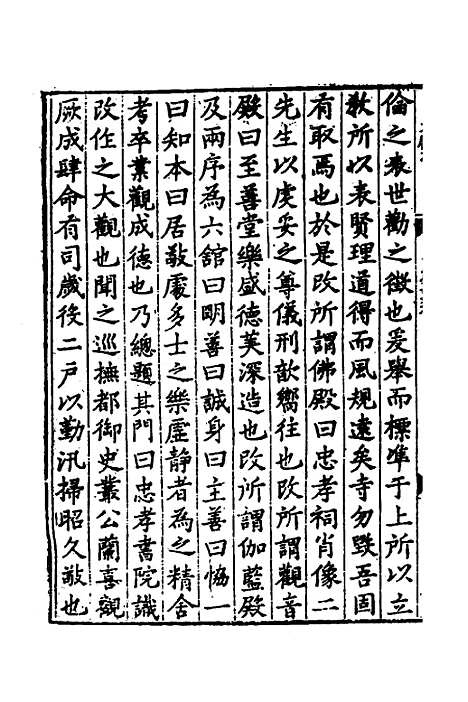 倫之表世勸之徵也爰舉而標準于上所以立
教所以表賢理道得而風規遠矣寺勿毀吾固
有取焉也於是改所謂佛殿曰忠孝祠肖像二
先生以虔妥之尊儀刑歆嚮往也改所謂觀音
殿曰至善堂樂盛德英深造也改所謂伽藍殿
及兩序為六舘曰明善曰誠身曰主善曰恊一
曰知本曰居敬處多士之樂虛靜者為之精舍
考卒業觀成德也乃總題其門曰忠孝書院識
改作之大觀也聞之巡撫都御史叢公蘭喜觀
厥成肆命有司歲後二戸以勤汛掃昭久敬也